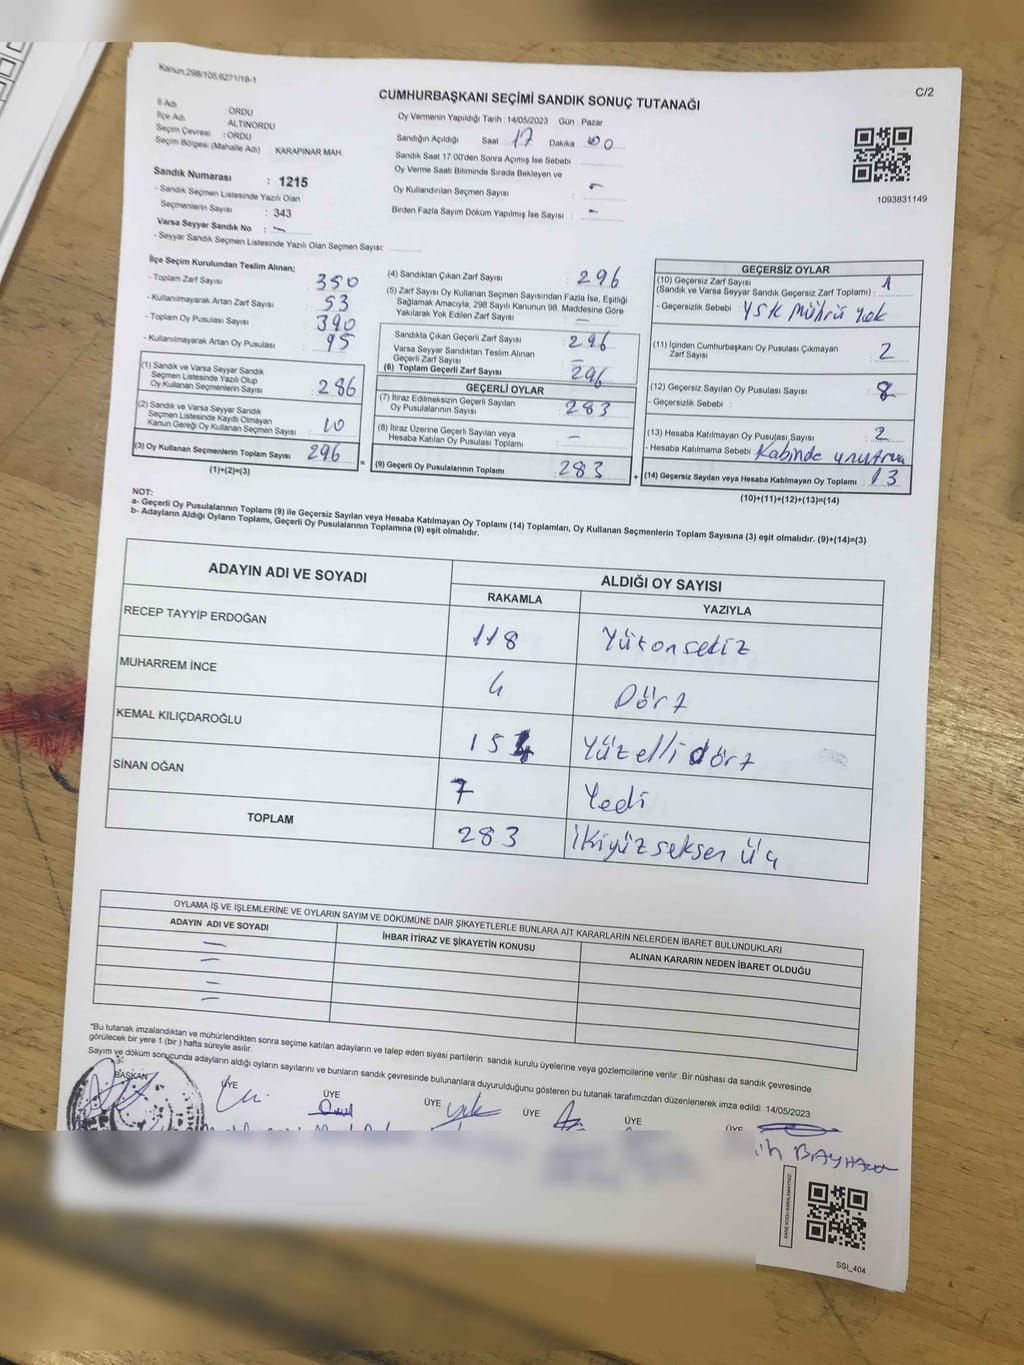 Kanun,298/105,6271/18-1
C/2
CUMHURBAŞKANI SEÇİMİ SANDIK SONUÇ TUTANAĞI
İl Adı : ORDU
İlçe Adı : ALTINORDU
Seçim Çevresi : ORDU
Seçim Bölgesi (Mahalle Adı) : KARAPINAR MAH.
Sandık Numarası : 1215
- Sandık Seçmen Listesinde Yazılı Olan
Seçmenlerin Sayısı : 343
Varsa Seyyar Sandık No : -
- Seyyar Sandık Seçmen Listesinde Yazılı Olan Seçmen Sayısı:
Oy Vermenin Yapıldığı Tarih : 14/05/2023 Gün : Pazar
Sandığın Açıldığı Saat : 17 Dakika : 00
Sandık Saat 17:00'den Sonra Açımış İse Sebebi :
Oy Verme Saati Bitiminde Sırada Bekleyen ve
Oy Kullandırılan Seçmen Sayısı : -
Birden Fazla Sayım Döküm Yapılmış İse Sayısı : -
1093831149
İlçe Seçim Kurulundan Teslim Alınan;
- Toplam Zarf Sayısı : 350
- Kullanılmayarak Artan Zarf Sayısı : 53
- Toplam Oy Pusulası Sayısı : 390
- Kullanılmayarak Artan Oy Pusulası : 95
(1) Sandık ve Varsa Seyyar Sandık
Seçmen Listesinde Yazılı Olup
Oy Kullanan Seçmenlerin Sayısı : 286
(2) Sandık ve Varsa Seyyar Sandık
Seçmen Listesinde Kayıtlı Olmayan
Kanun Gereği Oy Kullanan Seçmen Sayısı : 10
(3) Oy Kullanan Seçmenlerin Toplam Sayısı 296
(1)+(2)=(3)
(4) Sandıktan Çıkan Zarf Sayısı : 296
(5) Zarf Sayısı Oy Kullanan Seçmen Sayısından Fazla İse, Eşitliği
Sağlamak Amacıyla, 298 Sayılı Kanunun 98. Maddesine Göre
Yakılarak Yok Edilen Zarf Sayısı : -
Sandıkta Çıkan Geçerli Zarf Sayısı : 296
Varsa Seyyar Sandıktan Teslim Alınan
Geçerli Zarf Sayısı : -
(6) Toplam Geçerli Zarf Sayısı : 296
GEÇERLİ OYLAR
(7) İtiraz Edilmeksizin Geçerli Sayılan
Oy Pusulalarının Sayısı : 283
(8) İtiraz Üzerine Geçerli Sayılan veya
Hesaba Katılan Oy Pusulası Toplamı : -
(9) Geçerli Oy Pusulalarının Toplamı : 283
GEÇERSİZ OYLAR
(10) Geçersiz Zarf Sayısı
(Sandık ve Varsa Seyyar Sandık Geçersiz Zarf Toplamı) : 1
- Geçersizlik Sebebi : YSK Mührü Yok
(11) İçinden Cumhurbaşkanı Oy Pusulası Çıkmayan
Zarf Sayısı : 2
(12) Geçersiz Sayılan Oy Pusulası Sayısı : 8
- Geçersizlik Sebebi :
(13) Hesaba Katılmayan Oy Pusulası Sayısı : 2
- Hesaba Katılmama Sebebi : Kabinde unutma
(14) Geçersiz Sayılan veya Hesaba Katılmayan Oy Toplamı : 13
(10)+(11)+(12)+(13)=(14)
NOT:
a- Geçerli Oy Pusulalarının Toplamı (9) ile Geçersiz Sayılan veya Hesaba Katılmayan Oy Toplamı (14) Toplamları, Oy Kullanan Seçmenlerin Toplam Sayısına (3) eşit olmalıdır. (9)+(14)=(3)
b- Adayların Aldığı Oyların Toplamı, Geçerli Oy Pusulalarının Toplamına (9) eşit olmalıdır.
ADAYIN ADI VE SOYADI
ALDIĞI OY SAYISI
RAKAMLA
YAZIYLA
RECEP TAYYİP ERDOĞAN 118 Yüzonsekiz
MUHARREM İNCE 4 Dört
KEMAL KILIÇDAROĞLU 154 Yüzellidört
SİNAN OĞAN 7 Yedi
TOPLAM 283 İkiyüzseksen üç
OYLAMA İŞ VE İŞLEMLERİNE VE OYLARIN SAYIM VE DÖKÜMÜNE DAİR ŞİKAYETLERLE BUNLARA AİT KARARLARIN NELERDEN İBARET BULUNDUKLARI
ADAYIN ADI VE SOYADI
İHBAR İTİRAZ VE ŞİKAYETİN KONUSU
ALINAN KARARIN NEDEN İBARET OLDUĞU
"Bu tutanak imzalandıktan ve mühürlendikten sonra seçime katılan adayların ve talep eden siyasi partilerin sandık kurulu üyelerine veya gözlemcilerine verilir .Bir nüshası da sandık çevresinde
görülecek bir yere 1 (bir ) hafta süreyle asılır.
Sayım ve döküm sonucunda adayların aldığı oyların sayılarını ve bunların sandık çevresinde bulunanlara duyurulduğunu gösteren bu tutanak tarafımızdan düzenlenerek imza edildi. 14/05/2023
BAŞKAN
ÜYE
ÜYE
ÜYE
ÜYE
ÜYE
ÜYE
SSI_404